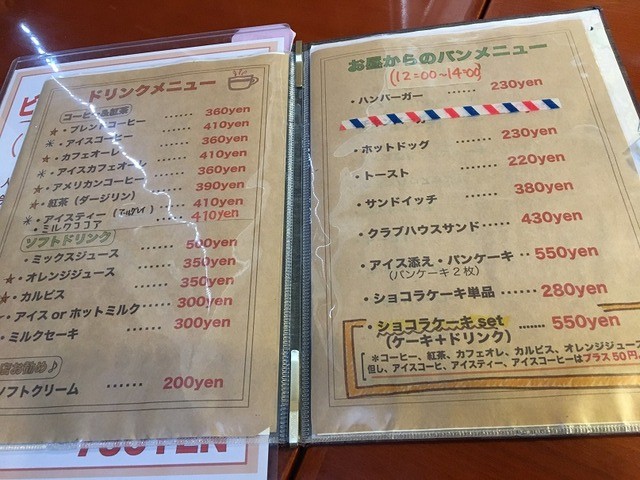 ドリンクメニュー
コーヒー&紅茶
★・ブレンドコーヒー ...... 360yen
✳・アイスコーヒー ...... 410yen
★・カフェオーレ ...... 360yen
✳・アイスカフェオーレ ...... 410yen
★・アメリカンコーヒー ...... 360yen
★・紅茶 (ダージリン) ...... 390yen
✳・アイスティー (アールグレイ) ...... 410yen
・ミルクココア ...... 410yen
ソフトドリンク
・ミックスジュース ...... 500yen
★・オレンジジュース ...... 350yen
★・カルピス ...... 350yen
・アイス or ホットミルク ...... 300yen
・ミルクセーキ ...... 300yen
お勧め♪
ソフトクリーム ...... 200yen
お昼からのパンメニュー
(12:00~14:00)
・ハンバーガー ...... 230yen
・ホットドッグ ...... 230yen
・トースト ...... 220yen
・サンドイッチ ...... 380yen
・クラブハウスサンド ...... 430yen
・アイス添え・パンケーキ ...... 550yen
(パンケーキ2枚)
・ショコラケーキ単品 ...... 280yen
・ショコラケーキset ...... 550yen
(ケーキ+ドリンク)
*コーヒー、紅茶、カフェオレ、カルピス、オレンジジュース
但し、アイスコーヒ、アイスティー、アイスコーヒーはプラス50円
YEN